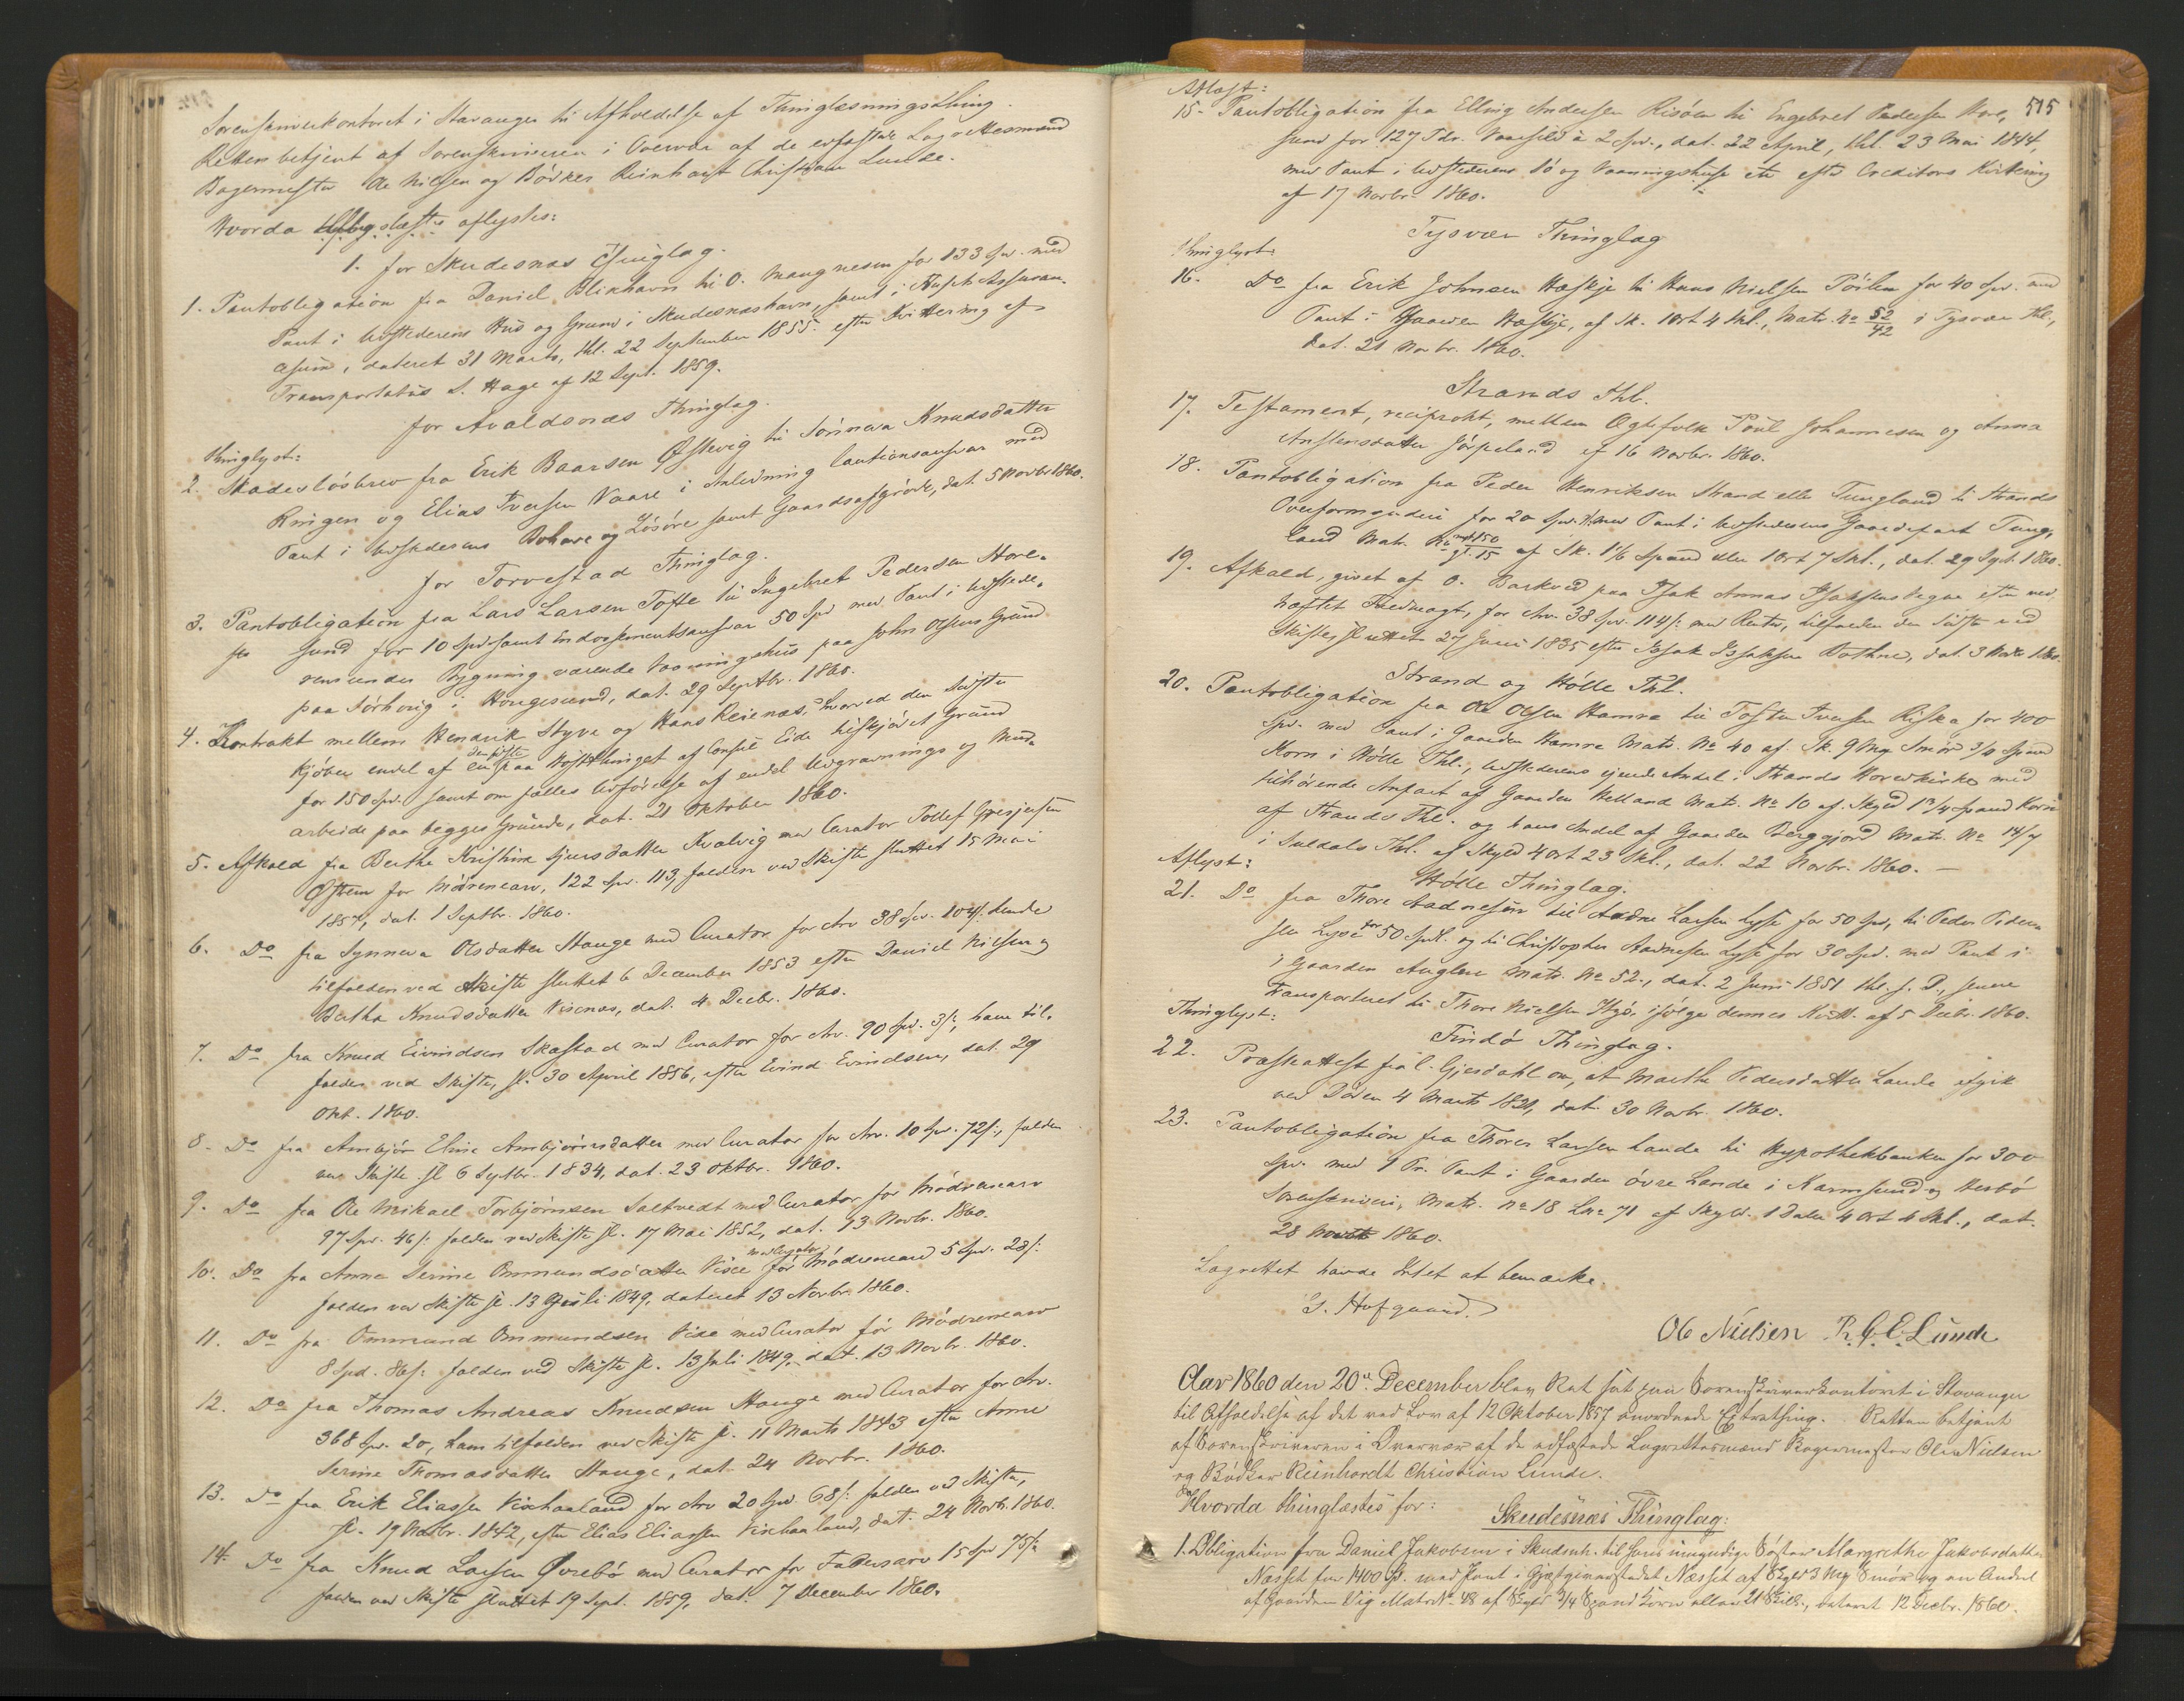 Sorenskriverkontoret i Stavanger til Afholdelse af Thinglæsningsthing.
Retten betjent af Sorenskriveren i Overvær af de edfæstede Lagrettesmænd
Bagermester Ole Nielsen og Bödker Reinhart Christian Lunde.
Hvorda aflystes:
1. for Skudesnæs Thinglag.
1. Pantobligation fra Daniel Blikhavn til O. Maugnesen for 133 Spd. med
Pant i Udstederens Hus og Grund i Skudesnæshavn, samt i Assuran-
cesum, dateret 31 Marts, thl. 22 September 1855 efter Kvittering af
Transportatus S. Hage af 12 Sept. 1859.
for Avaldsnæs Thinglag.
Thinglyst:
2. Skadeslösbrev fra Erik Baarsen Östevig til Sönneva Knudsdatter
Ringen og Elias Iversen Vaare i Anledning Cautionsansvar med
Pant i Udstederens Bohave og Lösöre samt Gaardsafgröde, dat. 5 Novbr 1860.
for Torvestad Thinglag.
3. Pantobligation fra Lars Larsen Tofte til Ingebret Pedersen Hore-
sund for 10 Spd samt Endossementsansvar 50 Spd med Pant i Udstede-
rens under Bygning værende Vaaningshus paa John Olsens Grund
paa Sörhoug i Hougesund, dat. 29 Septbr. 1860.
4. Kontrakt mellem Hendrik Styve og Hans Reienæs, hvorved den Sidste
kjöber endel af en den förste paa Höstthinget af Consul Eide tilskjödet Grund
for 150 Spd. samt om fælles Udförelse af endel Udgravnings og Mud-
arbeide paa begges Grunde, dat. 21 Oktober 1860.
5. Afkald fra Berthe Kristine Sjursdatter Kvalvig med Curator Tollef Gresjersen
Östrem for Mödrenearv, 122 Spd. 113, falden ved Skifte sluttet 15 Mai
1857, dat. 1 Septbr. 1860.
6. Do fra Synneva Olsdatter Stange med Curator for Arv 38 Spd. 104 ß. hende
tilfalden ved Skifte sluttet 6 December 1853 efter Daniel Nielsen og
Bertha Knudsdatter Visnæs, dat. 4 Decbr. 1860.
7. Do fra Knud Eivindsen Skastad med Curator for Arv. 90 Spd. 3 ß, ham til-
falden ved Skifte, sl. 30 April 1856, efter Eivind Eivindsen, dat. 29
Okt. 1860.
8. Do fra Ambjör Eline Ambjörnsdatter med Curator for Arv. 10 Spd. 72 ß, falden
ved Skifte sl 6 Septbr. 1834, dat. 23 Oktbr. 1860.
9. Do fra Ole Mikael Torbjörnsen Saltvedt med Curator for Mödrenearv
97 Spd. 46 ß: falden ved Skifte sl. 17 Mai 1852, dat. 13 Novbr. 1860.
10. Do fra Anne Serine Ommundsdatter Vise med Curator for Mödrenearv 5 Spd. 28 ß:
falden ved Skifte sl. 13 Juli 1849, dateret 13 Novbr. 1860.
11. Do fra Ommund Ommundsen Vise med Curator for Mödrenearv
8 Spd. 86 ß: falden ved Skifte sl. 13 Juli 1849, dat. 13 Novbr. 1860.
12. Do fra Thomas Andreas Knudsen Hauge med Curator for Arv.
368 Spd. 20, ham tilfalden ved Skifte sl. 11 Marts 1843 efter Anne
Serine Thomasdatter Hauge, dat. 24 Novbr. 1860.
13. Do fra Erik Eliassen Vikhaaland for Arv 20 Spd. 68 ß: falden ved Skifte,
sl. 19 Novbr. 1842, efter Elias Eliassen Vikhaaland, dat. 24 Novbr. 1860.
14. Do fra Knud Larsen Övrebö med Curator for Fædrenearv 15 Spd 75 ß:
falden ved Skifte sluttet 19 Sept. 1859, dat. 7 December 1860.
515
Aflyst:
15. Pantobligation fra Elling Andersen Risöen til Engebret Pedersen Hore-
sund for 127 Tdr. Vaarsild à 2 Spd., dat. 22 April, thl. 23 Mai 1844,
med Pant i Udstederens Sö og Vaaningshuse etc efter Creditors Kvittering
af 17 Novbr. 1860.
Tysvær Thinglag
Thinglyst:
16. Do fra Erik Johnsen Hæskje til Hans Nielsen Pöilen for 40 Spd. med
Pant i Gaarden Hæskje, af Sk. 1 Ort 4 Skl., Matr. No 52/42 i Tysvær Thl.,
dat. 21 Novbr. 1860.
Strands Thl.
17. Testament, reciprokt, mellem Ægtefolk Poul Johannesen og Anna
Anstensdatter Jörpeland af 16 Novbr. 1860.
18. Pantobligation fra Peder Henriksen Strand eller Tungland til Strands
Overformynderi for 20 Spd. med Pant i Udstederens Gaardpart Tung-
land Matr. No 150 gl. 15 af Sk. 1 1/6 Spand eller 1 Ort 7 Skl., dat. 29 Sept. 1860.
19. Afkald, givet af O. Barkved paa Isak Annas Isaksens vegne efter ved-
hæftet Fuldmagt, for Arv. 38 Spd. 114 ß: med Renter, tilfalden den Sidste ved
Skifte sluttet 27 Juni 1835 efter Isak Isaksen Bothne, dat. 3 Novbr 1860.
Strand og Hölle Thl.
20. Pantobligation fra Ole Olsen Hamre til Tosten Iversen Riska for 400
Spd. med Pant i Gaarden Hamre Matr. No 40 af Sk. 9 Mrk Smör 3/4 Spand
Korn i Hölle Thl., Udstederens eiende Andel i Strands Hovedkirke med
tilhörende Anpart af Gaarden Helland Matr. No 10 af Skyld 1 3/4 Spand Korn
af Strands Thl. og hans Andel af Gaarden Berggjord Matr. No 14/7
i Suldals Thl. af Skyld 4 Ort 23 Skl., dat. 22 Novbr. 1860. —
Aflyst:
Hölle Thinglag.
21. Do fra Thore Aadnesen til Aadne Larsen Lyse for 50 Spd, til Peder Peder-
sen Lyse for 50 Spd. og til Christopher Aadnesen Lyse for 30 Spd. med Pant i
i Gaarden Auglen Matr. No 52., dat. 2 Juni 1851 thl. s. D., senere
transporteret til Thore Nielsen Högs. ifölge dennes Kvitt. af 5 Decbr. 1860.
Thinglyst:
Findö Thinglag.
22. Præsteattest fra C. Gjesdahl om, at Marthe Pedersdatter Lande afgik
ved Döden 4 Marts 1821, dat. 30 Novbr. 1860.
23. Pantobligation fra Thores Larsen Lande til Hypothekbanken for 300
Spd. med 1 Pr. Pant i Gaarden övre Lande i Karmsund og Hesbö
Sorenskriveri, Matr. No 18 Lno 71 af Skyld. 1 Daler 4 Ort 4 Skl., dat.
28 Novbr 1860.
Lagrettet havde Intet at bemærke.
S. Hofgaard.
Ole Nielsen R. C. E. Lunde
Aar 1860 den 20de December blev Ret sat paa Sorenskriverkontoret i Stavanger
til Afholdelse af det ved Lov af 12 Oktober 1857 anordnede Extrathing. Retten betjent
af Sorenskriveren i Overvær af de edfæstede Lagrettesmænd Bagermester Ole Nielsen
og Bödker Reinhardt Christian Lunde.
Hvorda thinglæstes for:
Skudesnæs Thinglag:
1. Obligation fra Daniel Jakobsen i Skudenh. til sin umyndige Söster Margrethe Jakobsdatter
Næsset for 1400 Sp. med Pant i Gjæstgiverstedet Næsset af Skyld 3 Mrk Smör og en Andel
af Gaarden Vig Matr No. 48 af Skyld 3/4 Spand Korn eller 21 Skill., dateret 12 Decbr. 1860.